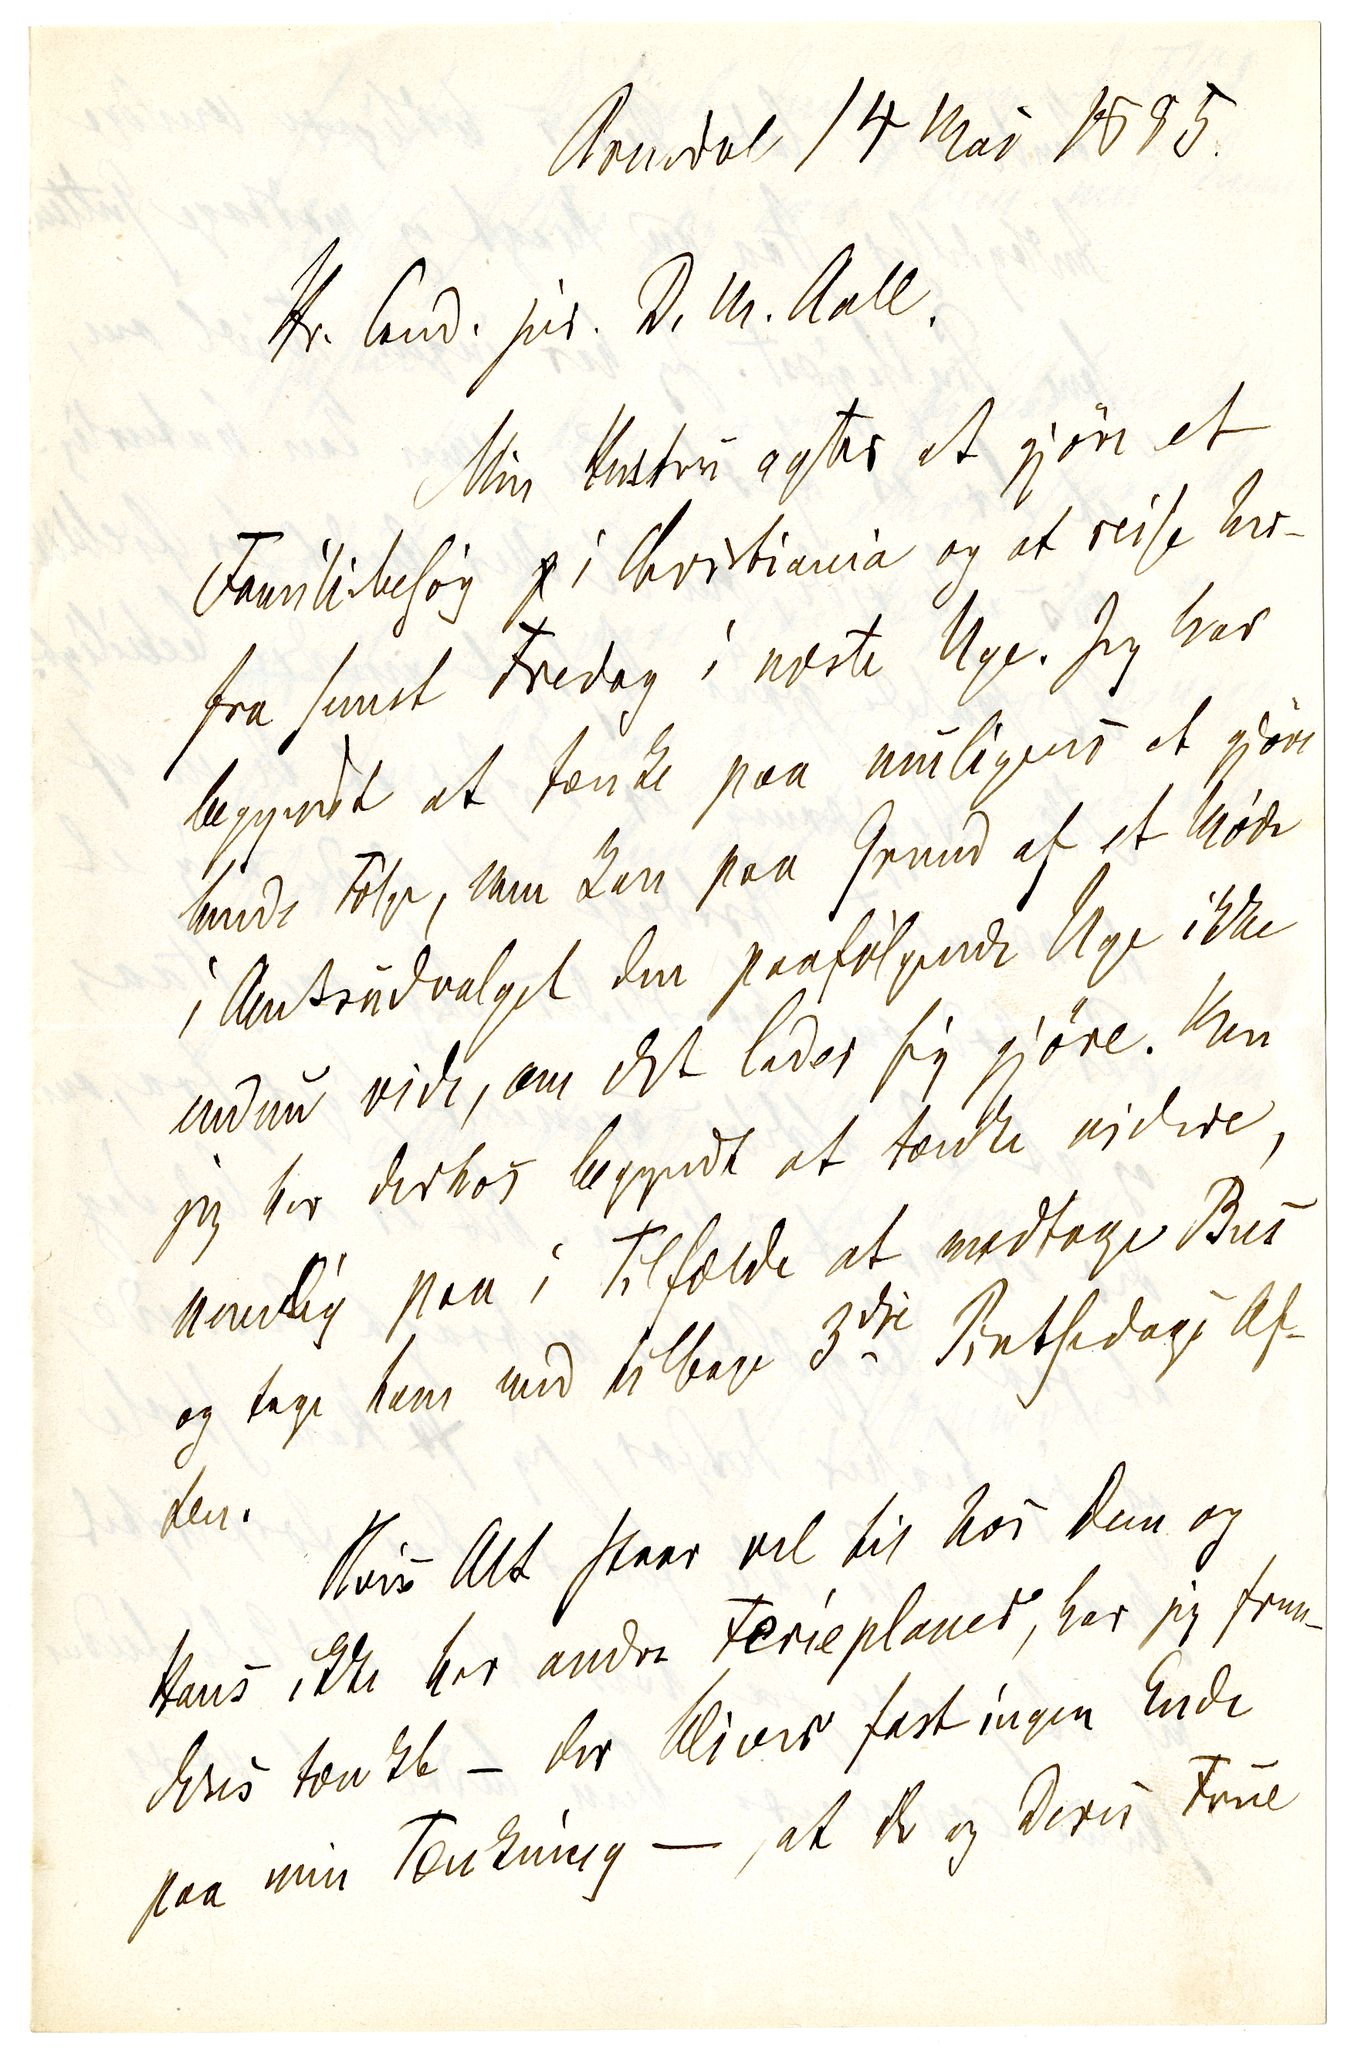 Arendal 14 Mai 1885.
Hr. Cand. jur. D. M. Aall.
Min Hustru agter at gjöre et
Familiebesög i Christiania og at reise her-
fra senest Fredag i næste Uge. Jeg har
begyndt at tænke paa muligens at gjöre
hende Følge, men kan paa Grund af et Möde
i Amtsudvalget den paafölgende Uge ikke
endnu vide, om det lader sig gjöre. Men
jeg har derhos begyndt at tænke videre,
nemlig paa i Tilfælde at medtage
og tage ham med tilbage 3die Pintsedags Af-
ten.
Hvis Alt staar vel til hos Dem og
Hans ikke har andre Ferieplaner, har jeg frem-
deles tænkt – der bliver fast ingen Ende
paa min Tænkning –, at De og Deres Frue